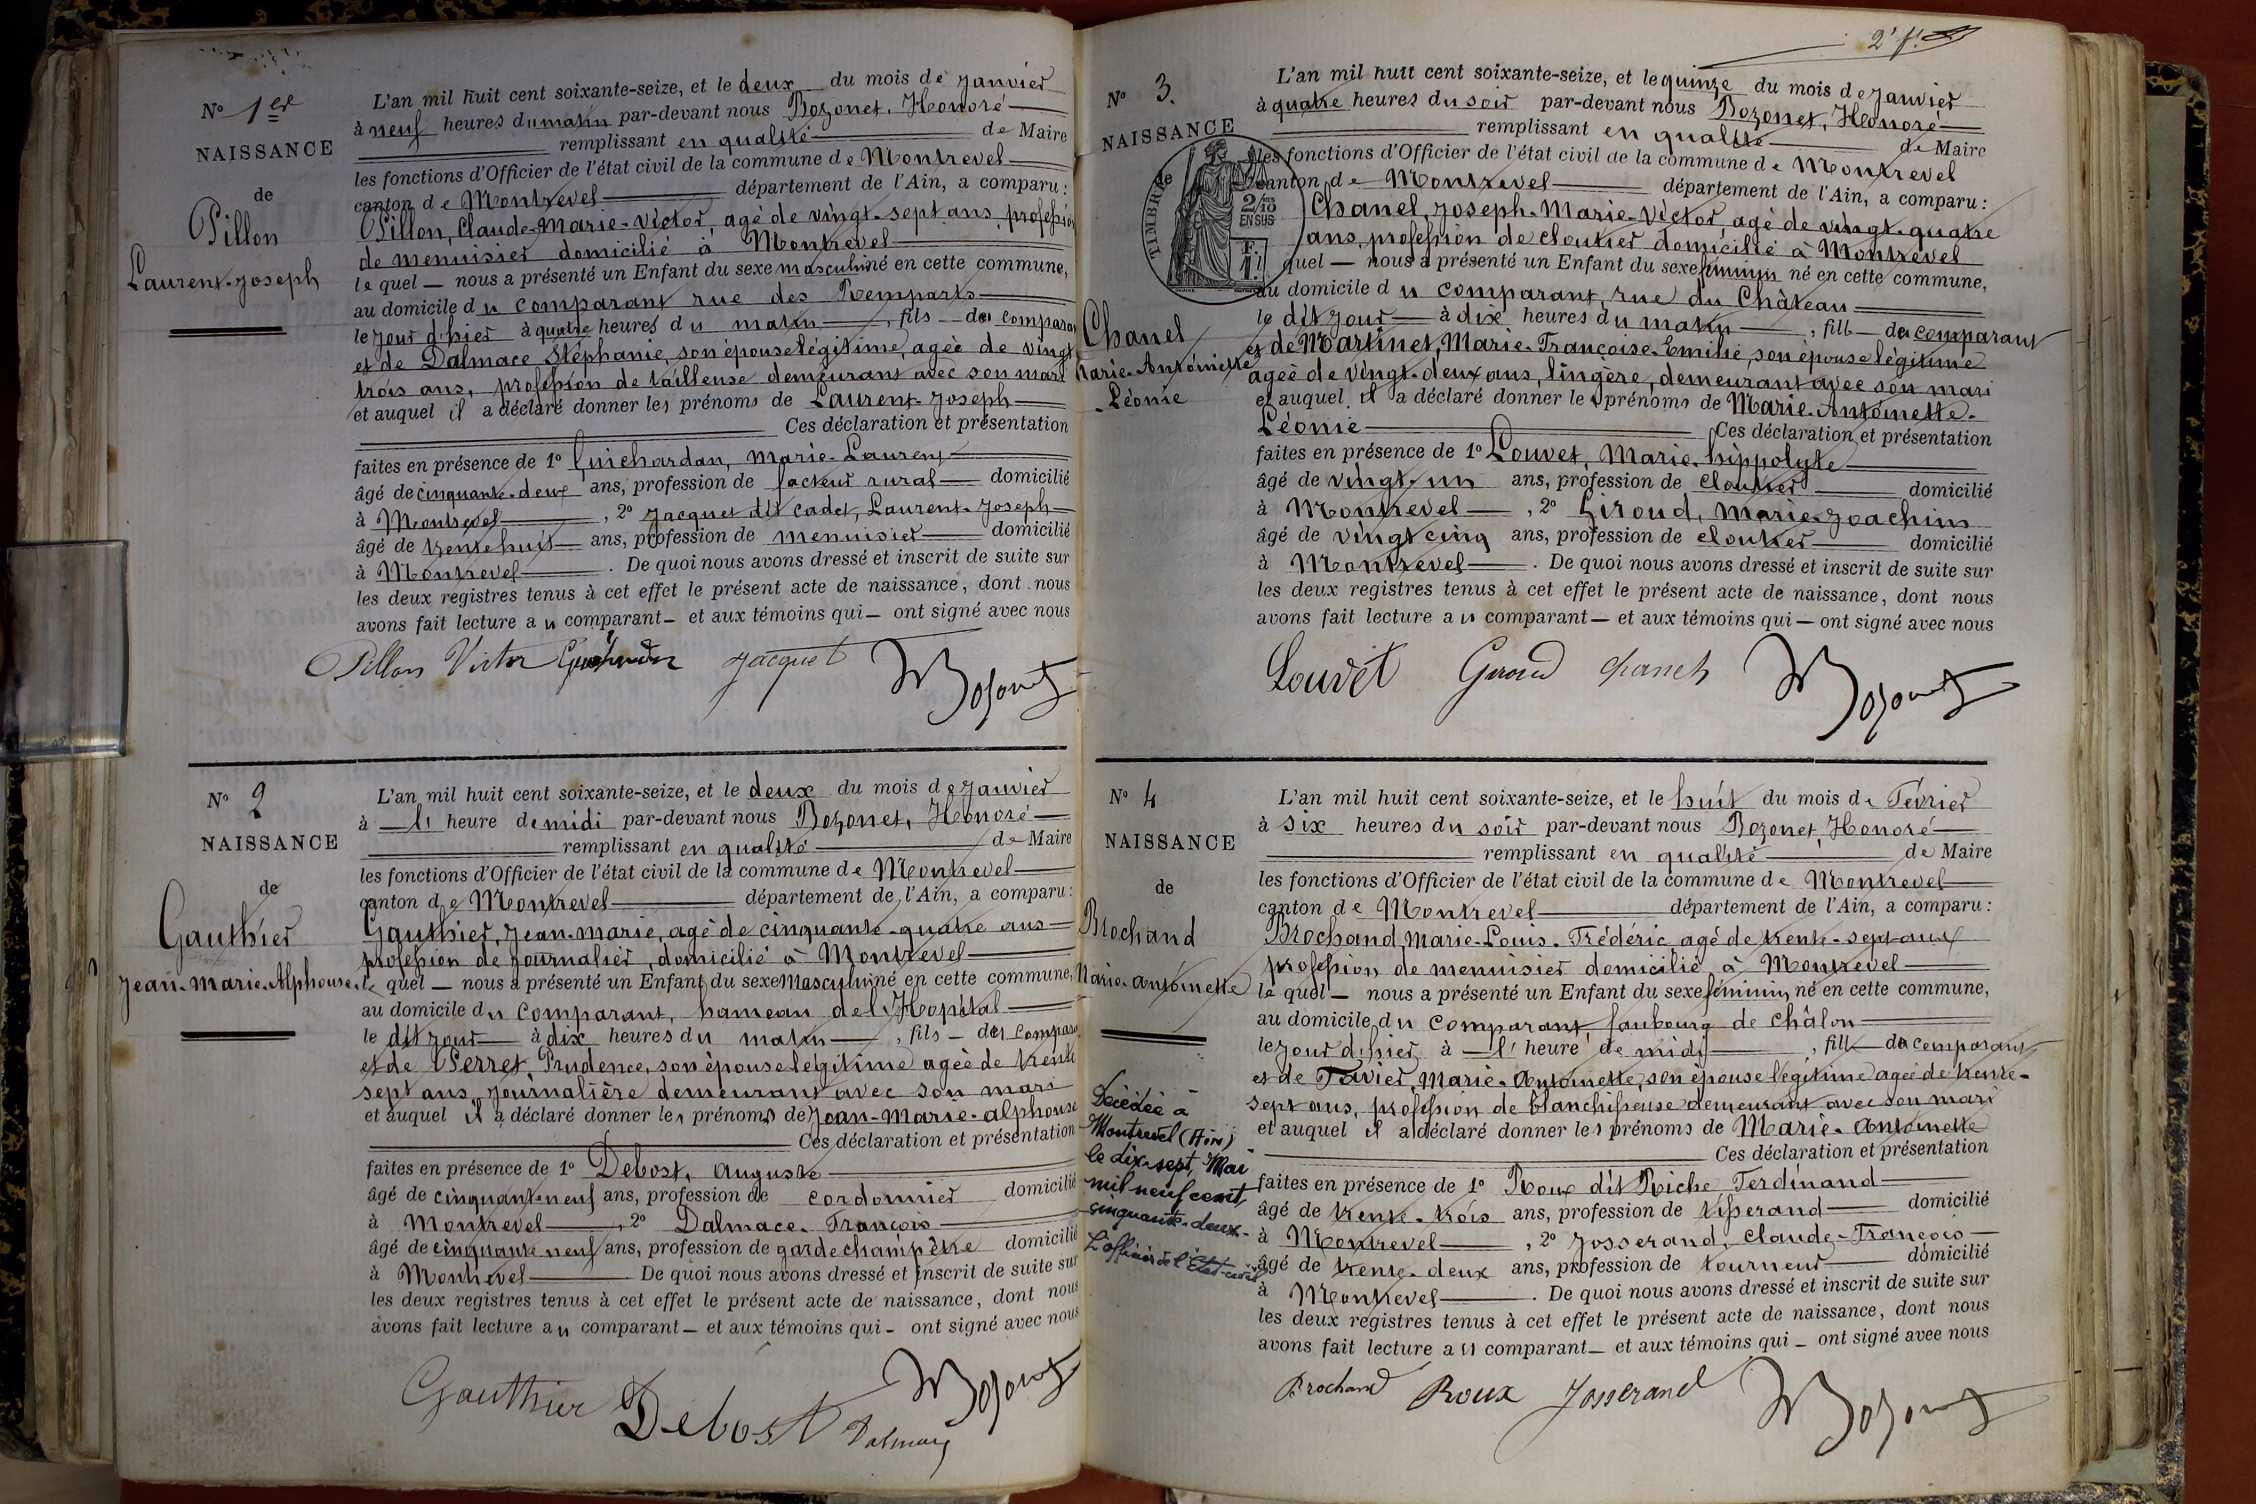 Nº 1er
NAISSANCE
de
Pillon
Laurent-Joseph
L'an mil huit cent soixante-seize, et le deux du mois de Janvier
à neuf heures du matin par-devant nous Bozonet, Honoré
remplissant en qualité de Maire
les fonctions d'Officier de l'état civil de la commune de Montrevel
canton de Montrevel département de l'Ain, a comparu :
Pillon, Claude-Marie-Victor, agé de vingt-sept ans profession
de menuisier domicilié à Montrevel
le quel nous a présenté un Enfant du sexe masculin né en cette commune,
au domicile du comparant rue des Remparts
le jour d'hier à quatre heures du matin, fils du comparant
et de Dalmace Stéphanie, son épouse légitime, agée de vingt
trois ans, profession de tailleuse demeurant avec son mari
et auquel il a déclaré donner les prénoms de Laurent-Joseph
Ces déclaration et présentation
faites en présence de 1º Guichardan, Marie-Laurent
âgé de cinquante-deux ans, profession de facteur rural domicilié
à Montrevel, 2º Jacquet dit Cadet, Laurent-Joseph
âgé de trente huit ans, profession de menuisier domicilié
à Montrevel. De quoi nous avons dressé et inscrit de suite sur
les deux registres tenus à cet effet le présent acte de naissance, dont nous
avons fait lecture au comparant et aux témoins qui ont signé avec nous
Pillon Victor Jacquet Bozonet
Nº 2
NAISSANCE
de
Gauthier
Jean-Marie-Alphonse
L'an mil huit cent soixante-seize, et le deux du mois de Janvier
à l' heure de midi par-devant nous Bozonet, Honoré
remplissant en qualité de Maire
les fonctions d'Officier de l'état civil de la commune de Montrevel
canton de Montrevel département de l'Ain, a comparu :
Gauthier, Jean-Marie, agé de cinquante-quatre ans
profession de journalier, domicilié à Montrevel
le quel nous a présenté un Enfant du sexe Masculin né en cette commune,
au domicile du comparant, hameau de l'Hopital
le dit jour à dix heures du matin, fils du compara
et de Perret, Prudence, son épouse légitime agée de trente
sept ans, journalière demeurant avec son mari
et auquel il a déclaré donner les prénoms de Jean-Marie-Alphonse
Ces déclaration et présentation
faites en présence de 1º Debost, Auguste
âgé de cinquante neuf ans, profession de cordonnier domicilié
à Montrevel, 2º Dalmace François
âgé de cinquante neuf ans, profession de garde champêtre domicilié
à Montrevel De quoi nous avons dressé et inscrit de suite sur
les deux registres tenus à cet effet le présent acte de naissance, dont nous
avons fait lecture au comparant et aux témoins qui ont signé avec nous
Gauthier Debost Dalmace Bozonet
2e f.
Nº 3.
NAISSANCE
de
TIMBRE
2/10
EN SUS
Chanel
Marie-Antoinette
Léonie
L'an mil huit cent soixante-seize, et le quinze du mois de Janvier
à quatre heures du soir par-devant nous Bozonet, Honoré
remplissant en qualité de Maire
les fonctions d'Officier de l'état civil de la commune de Montrevel
canton de Montrevel département de l'Ain, a comparu :
Chanel, Joseph-Marie-Victor, agé de vingt-quatre
ans, profession de cloutier domicilié à Montrevel
quel nous a présenté un Enfant du sexe féminin né en cette commune,
au domicile du comparant, rue du Château
le dit jour à dix heures du matin, fille du comparant
et de Martinet, Marie-Françoise-Emilie, son épouse légitime
agée de vingt-deux ans, lingère, demeurant avec son mari
et auquel il a déclaré donner les prénoms de Marie-Antoinette-
Léonie Ces déclaration et présentation
faites en présence de 1º Louvet, Marie-hippolyte
âgé de vingt-un ans, profession de cloutier domicilié
à Montrevel, 2º Giroud, Marie-Joachim
âgé de vingt cinq ans, profession de cloutier domicilié
à Montrevel. De quoi nous avons dressé et inscrit de suite sur
les deux registres tenus à cet effet le présent acte de naissance, dont nous
avons fait lecture au comparant et aux témoins qui ont signé avec nous
Louvet Giroud Chanel Bozonet
Nº 4
NAISSANCE
de
Brochand
Marie-Antoinette
Décédée à
Montrevel (Ain)
le dix-sept Mai
mil neuf cent
cinquante-deux-
L'officier de l'Etat-civil
L'an mil huit cent soixante-seize, et le huit du mois de Février
à six heures du soir par-devant nous Bozonet, Honoré
remplissant en qualité de Maire
les fonctions d'Officier de l'état civil de la commune de Montrevel
canton de Montrevel département de l'Ain, a comparu :
Brochand, Marie-Louis-Frédéric agé de trente-sept ans
profession de menuisier domicilié à Montrevel
le quel nous a présenté un Enfant du sexe féminin né en cette commune,
au domicile du comparant faubourg de Châlon
le jour d'hier à l' heure de midi, fille du comparant
et de Favier, Marie-Antoinette, son épouse légitime agée de trente-
sept ans, profession de blanchisseuse demeurant avec son mari
et auquel il a déclaré donner les prénoms de Marie-Antoinette
Ces déclaration et présentation
faites en présence de 1º Roux dit Riche Ferdinand
âgé de trente-trois ans, profession de tisserand domicilié
à Montrevel, 2º Josserand, Claude-François
âgé de trente-deux ans, profession de tourneur domicilié
à Montrevel. De quoi nous avons dressé et inscrit de suite sur
les deux registres tenus à cet effet le présent acte de naissance, dont nous
avons fait lecture au comparant et aux témoins qui ont signé avec nous
Brochand Roux Josserand Bozonet